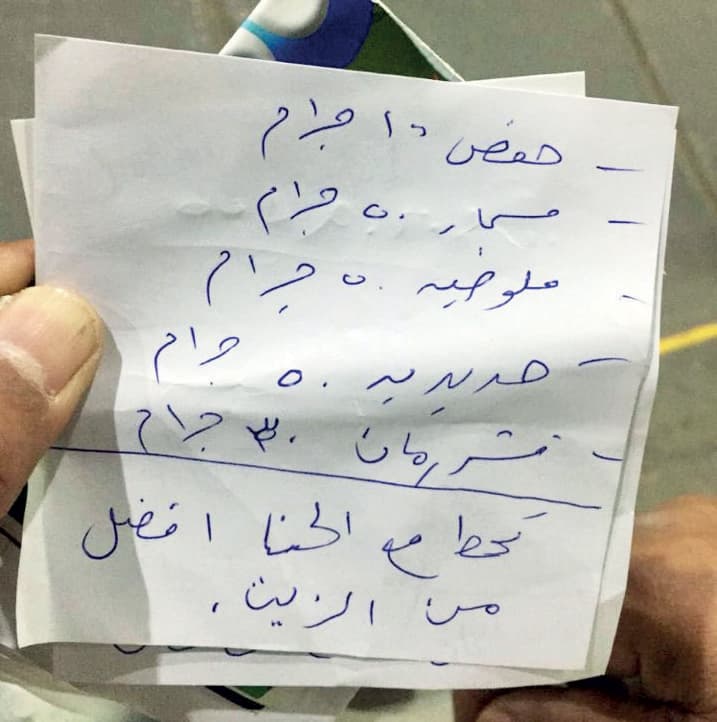 - عفص ١٠٠ جرام
- مسمار ٥٠ جرام
- ملوخيه ٥٠ جرام
- حديديه ٥٠ جرام
- قشر رمان ٣٠ جرام
تحط مع الحنا افضل
من الزيت .